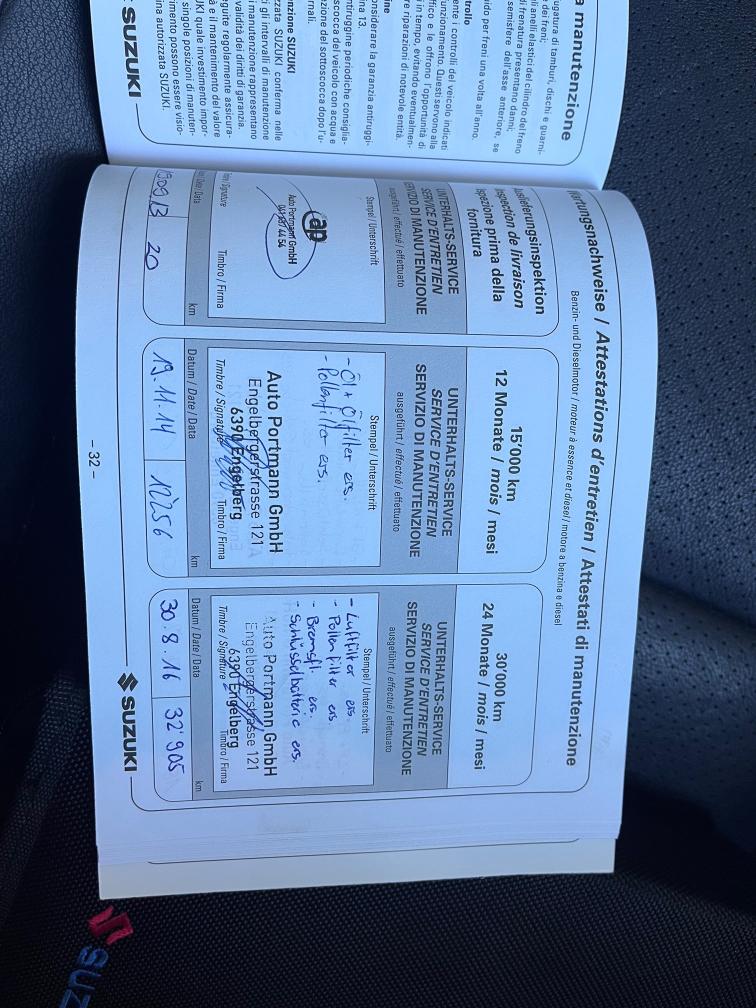 a manutenzione
ugatura di tamburi, dischi e guarni-
dei freni;
li anelli elastici del cilindro del freno
di frenatura presentano danni;
semisfere dell'asse anteriore, se
trollo
uido per freni una volta all'anno.
ente i controlli del veicolo indicati
funzionamento. Questi servono alla
ffico e le offrono l'opportunità di
i in tempo, evitando eventualmen-
re riparazioni di notevole entità.
ine
onsiderare la garanzia antiruggi-
ina 13.
antiruggine periodiche consiglia-
scocca del veicolo con acqua e
zione del sottoscocca dopo l'u-
rnali.
enzione SUZUKI
zzata SUZUKI conferma nelle
i di intervalli di manutenzione
i manutenzione rappresentano
validità dei diritti di garanzia.
eguite regolarmente assicura-
à e il mantenimento del valore
UKI quale investimento impor-
singole posizioni di manuten-
imento possono essere visio-
ina autorizzata SUZUKI.
SUZUKI
Wartungsnachweise / Attestations d'entretien / Attestati di manutenzione
Benzin- und Dieselmotor / moteur à essence et diesel / motore a benzina e diesel
Auslieferungsinspektion
Inspection de livraison
Ispezione prima della
fornitura
UNTERHALTS-SERVICE
SERVICE D'ENTRETIEN
SERVIZIO DI MANUTENZIONE
ausgeführt / effectué / effettuato
Stempel / Unterschrift
ap
Auto Portmann GmbH
Timbro / Firma
Data
km
20
15'000 km
12 Monate / mois / mesi
UNTERHALTS-SERVICE
SERVICE D'ENTRETIEN
SERVIZIO DI MANUTENZIONE
ausgeführt / effectué / effettuato
Stempel / Unterschrift
- Öl + Ölfilter ers.
- Pollenfilter ers.
Auto Portmann GmbH
Engelbergerstrasse 121
6390 Engelberg
Timbre / Signature
Timbro / Firma
Datum / Date / Data
km
19.11.14
12'256
30'000 km
24 Monate / mois / mesi
UNTERHALTS-SERVICE
SERVICE D'ENTRETIEN
SERVIZIO DI MANUTENZIONE
ausgeführt / effectué / effettuato
Stempel / Unterschrift
- Luftfilter ers.
- Pollenfilter ers
- Bremsfl. ers.
- Schlüsselbatterie ers.
Auto Portmann GmbH
Engelbergerstrasse 121
6390 Engelberg
Timbre / Signature
Timbro / Firma
Datum / Date / Data
km
30.8.16
32'905
- 32 -
SUZUKI
SUZ